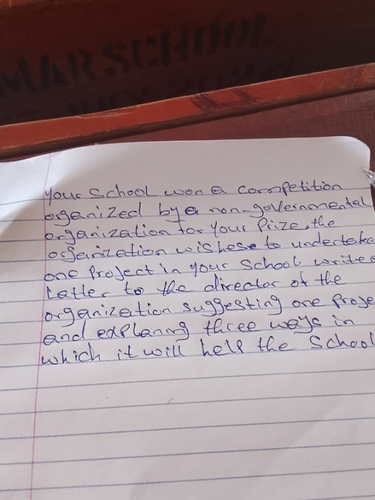 MAR SCHOOL
your School won a competition
organized by a non-governmental
organization for your Prize, the
organization wishes to undertake
one project in your school write a
Letter to the director of the
organization suggesting one Proje
and explaning three ways in
which it will help the School